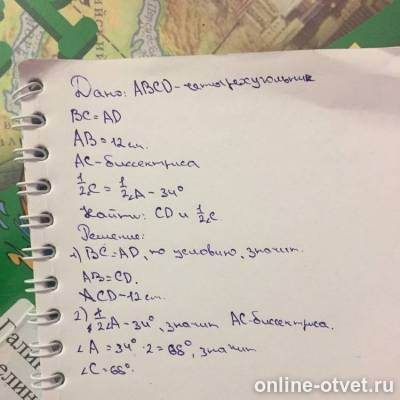 Дано: ABCD-четырехугольник
BC=AD
AB=12см.
AC-биссектриса
1/2∠C=1/2∠A-34°
Найти: CD и 1/2∠C.
Решение:
1) BC=AD, по условию, значит
AB=CD.
CD-12см.
2) 1/2∠A-34°, значит AC-биссектриса.
∠A=34°·2=68°, значит
∠C=68°.
Гали
елин
online-otvet.ru